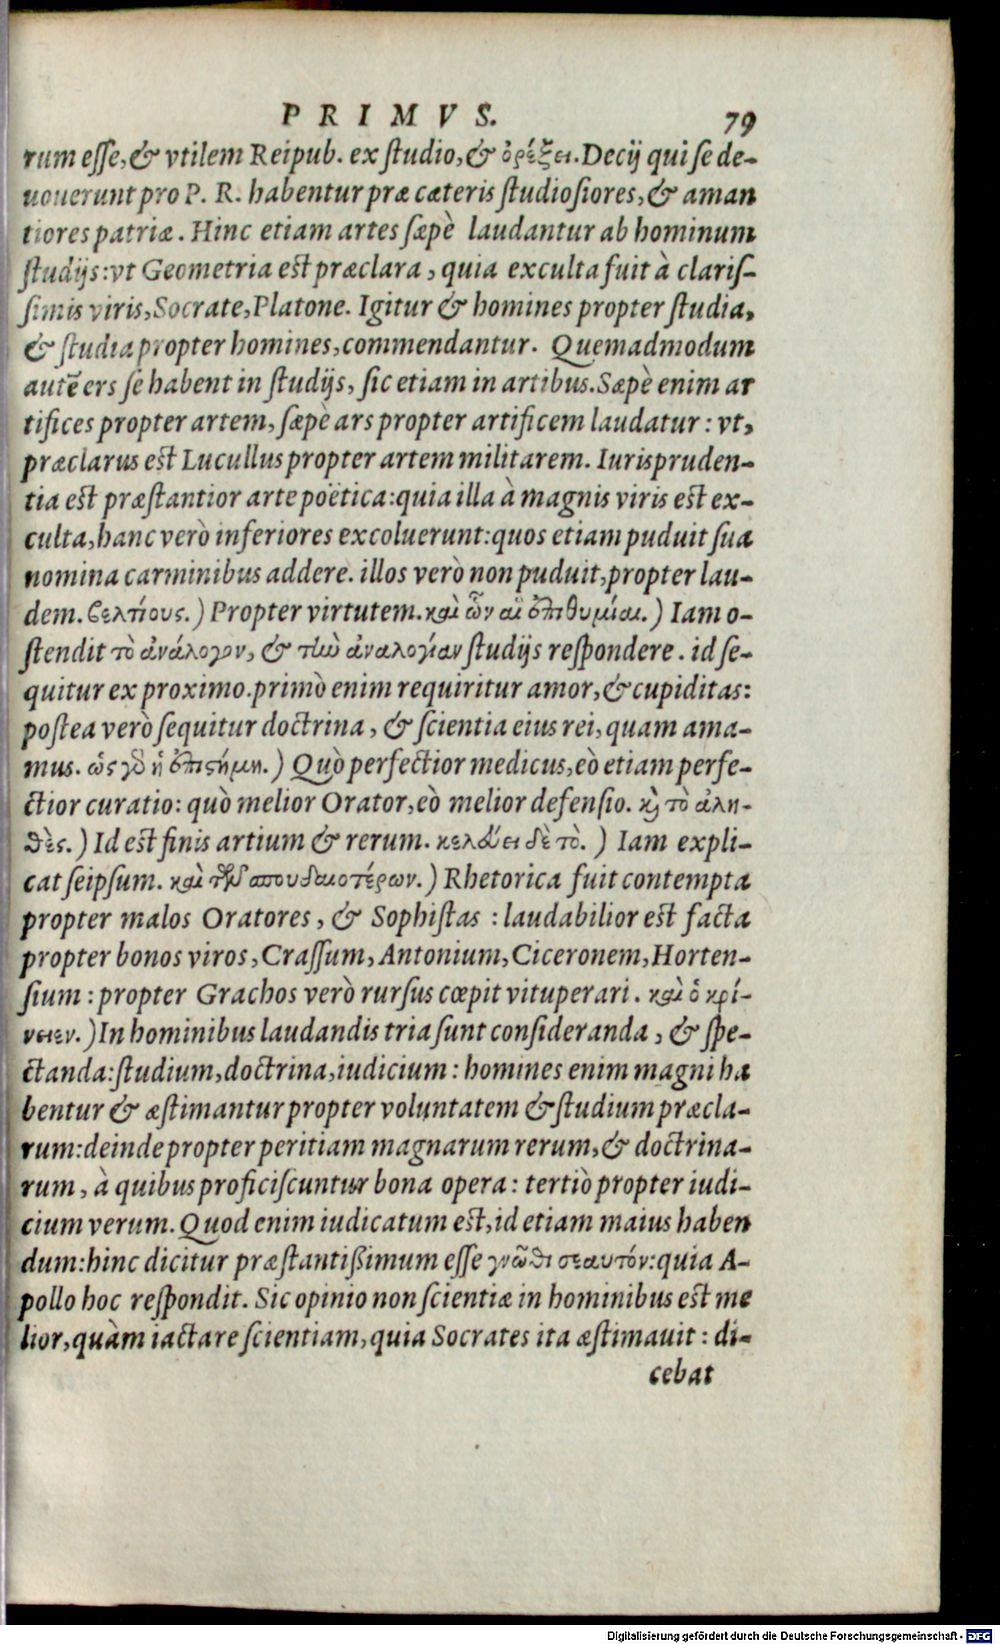 PRIMVS. 79
rum esse, & vtilem Reipub. ex studio, & ὀρέξει. Decij qui se de-
uouerunt pro P. R. habentur præ cæteris studiosiores, & aman
tiores patriæ. Hinc etiam artes sæpè laudantur ab hominum
studijs: vt Geometria est præclara, quia exculta fuit à claris-
simis viris, Socrate, Platone. Igitur & homines propter studia,
& studia propter homines, commendantur. Quemadmodum
autẽ ers se habent in studijs, sic etiam in artibus. Sæpè enim ar
tifices propter artem, sæpè ars propter artificem laudatur: vt,
præclarus est Lucullus propter artem militarem. Iurispruden-
tia est præstantior arte poëtica: quia illa à magnis viris est ex-
culta, hanc verò inferiores excoluerunt: quos etiam puduit sua
nomina carminibus addere. illos verò non puduit, propter lau-
dem. βελτίους.) Propter virtutem. καὶ ὧν αἱ ἐπιθυμίαι.) Iam o-
stendit τὸ ἀνάλογον, & τὴν ἀναλογίαν studijs respondere. id se-
quitur ex proximo. primò enim requiritur amor, & cupiditas:
postea verò sequitur doctrina, & scientia eius rei, quam ama-
mus. ὡς γὸ ἡ ἐπιστήμη.) Quò perfectior medicus, eò etiam perfe-
ctior curatio: quò melior Orator, eò melior defensio. καὶ τὸ ἀλη-
θὲς.) Id est finis artium & rerum. κελεύει δὲ τὸ.) Iam expli-
cat seipsum. καὶ τῶν σπουδαιοτέρων.) Rhetorica fuit contempta
propter malos Oratores, & Sophistas: laudabilior est facta
propter bonos viros, Crassum, Antonium, Ciceronem, Horten-
sium: propter Grachos verò rursus cœpit vituperari. καὶ ὁ κρί-
νειεν.) In hominibus laudandis tria sunt consideranda, & spe-
ctanda: studium, doctrina, iudicium: homines enim magni ha
bentur & æstimantur propter voluntatem & studium præcla-
rum: deinde propter peritiam magnarum rerum, & doctrina-
rum, à quibus proficiscuntur bona opera: tertiò propter iudi-
cium verum. Quod enim iudicatum est, id etiam maius haben
dum: hinc dicitur præstantißimum esse γνῶθι σεαυτόν: quia A-
pollo hoc respondit. Sic opinio non scientiæ in hominibus est me
lior, quàm iactare scientiam, quia Socrates ita æstimauit: di-
cebat
Digitalisierung gefördert durch die Deutsche Forschungsgemeinschaft - DFG